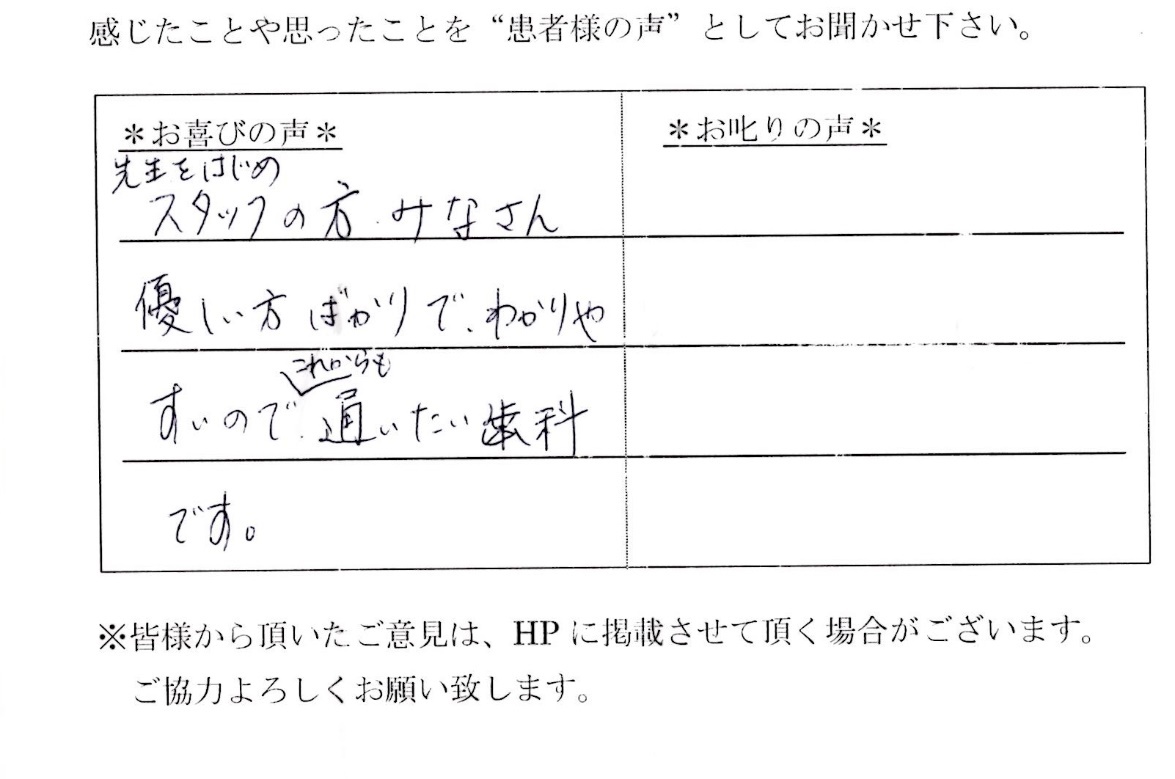 感じたことや思ったことを“患者様の声”としてお聞かせ下さい。
＊お喜びの声＊
先生をはじめ
スタッフの方、みなさん
優しい方ばかりで、わかりや
これからも
すいので、通いたい歯科
です。
＊お叱りの声＊
※皆様から頂いたご意見は、HPに掲載させて頂く場合がございます。
ご協力よろしくお願い致します。